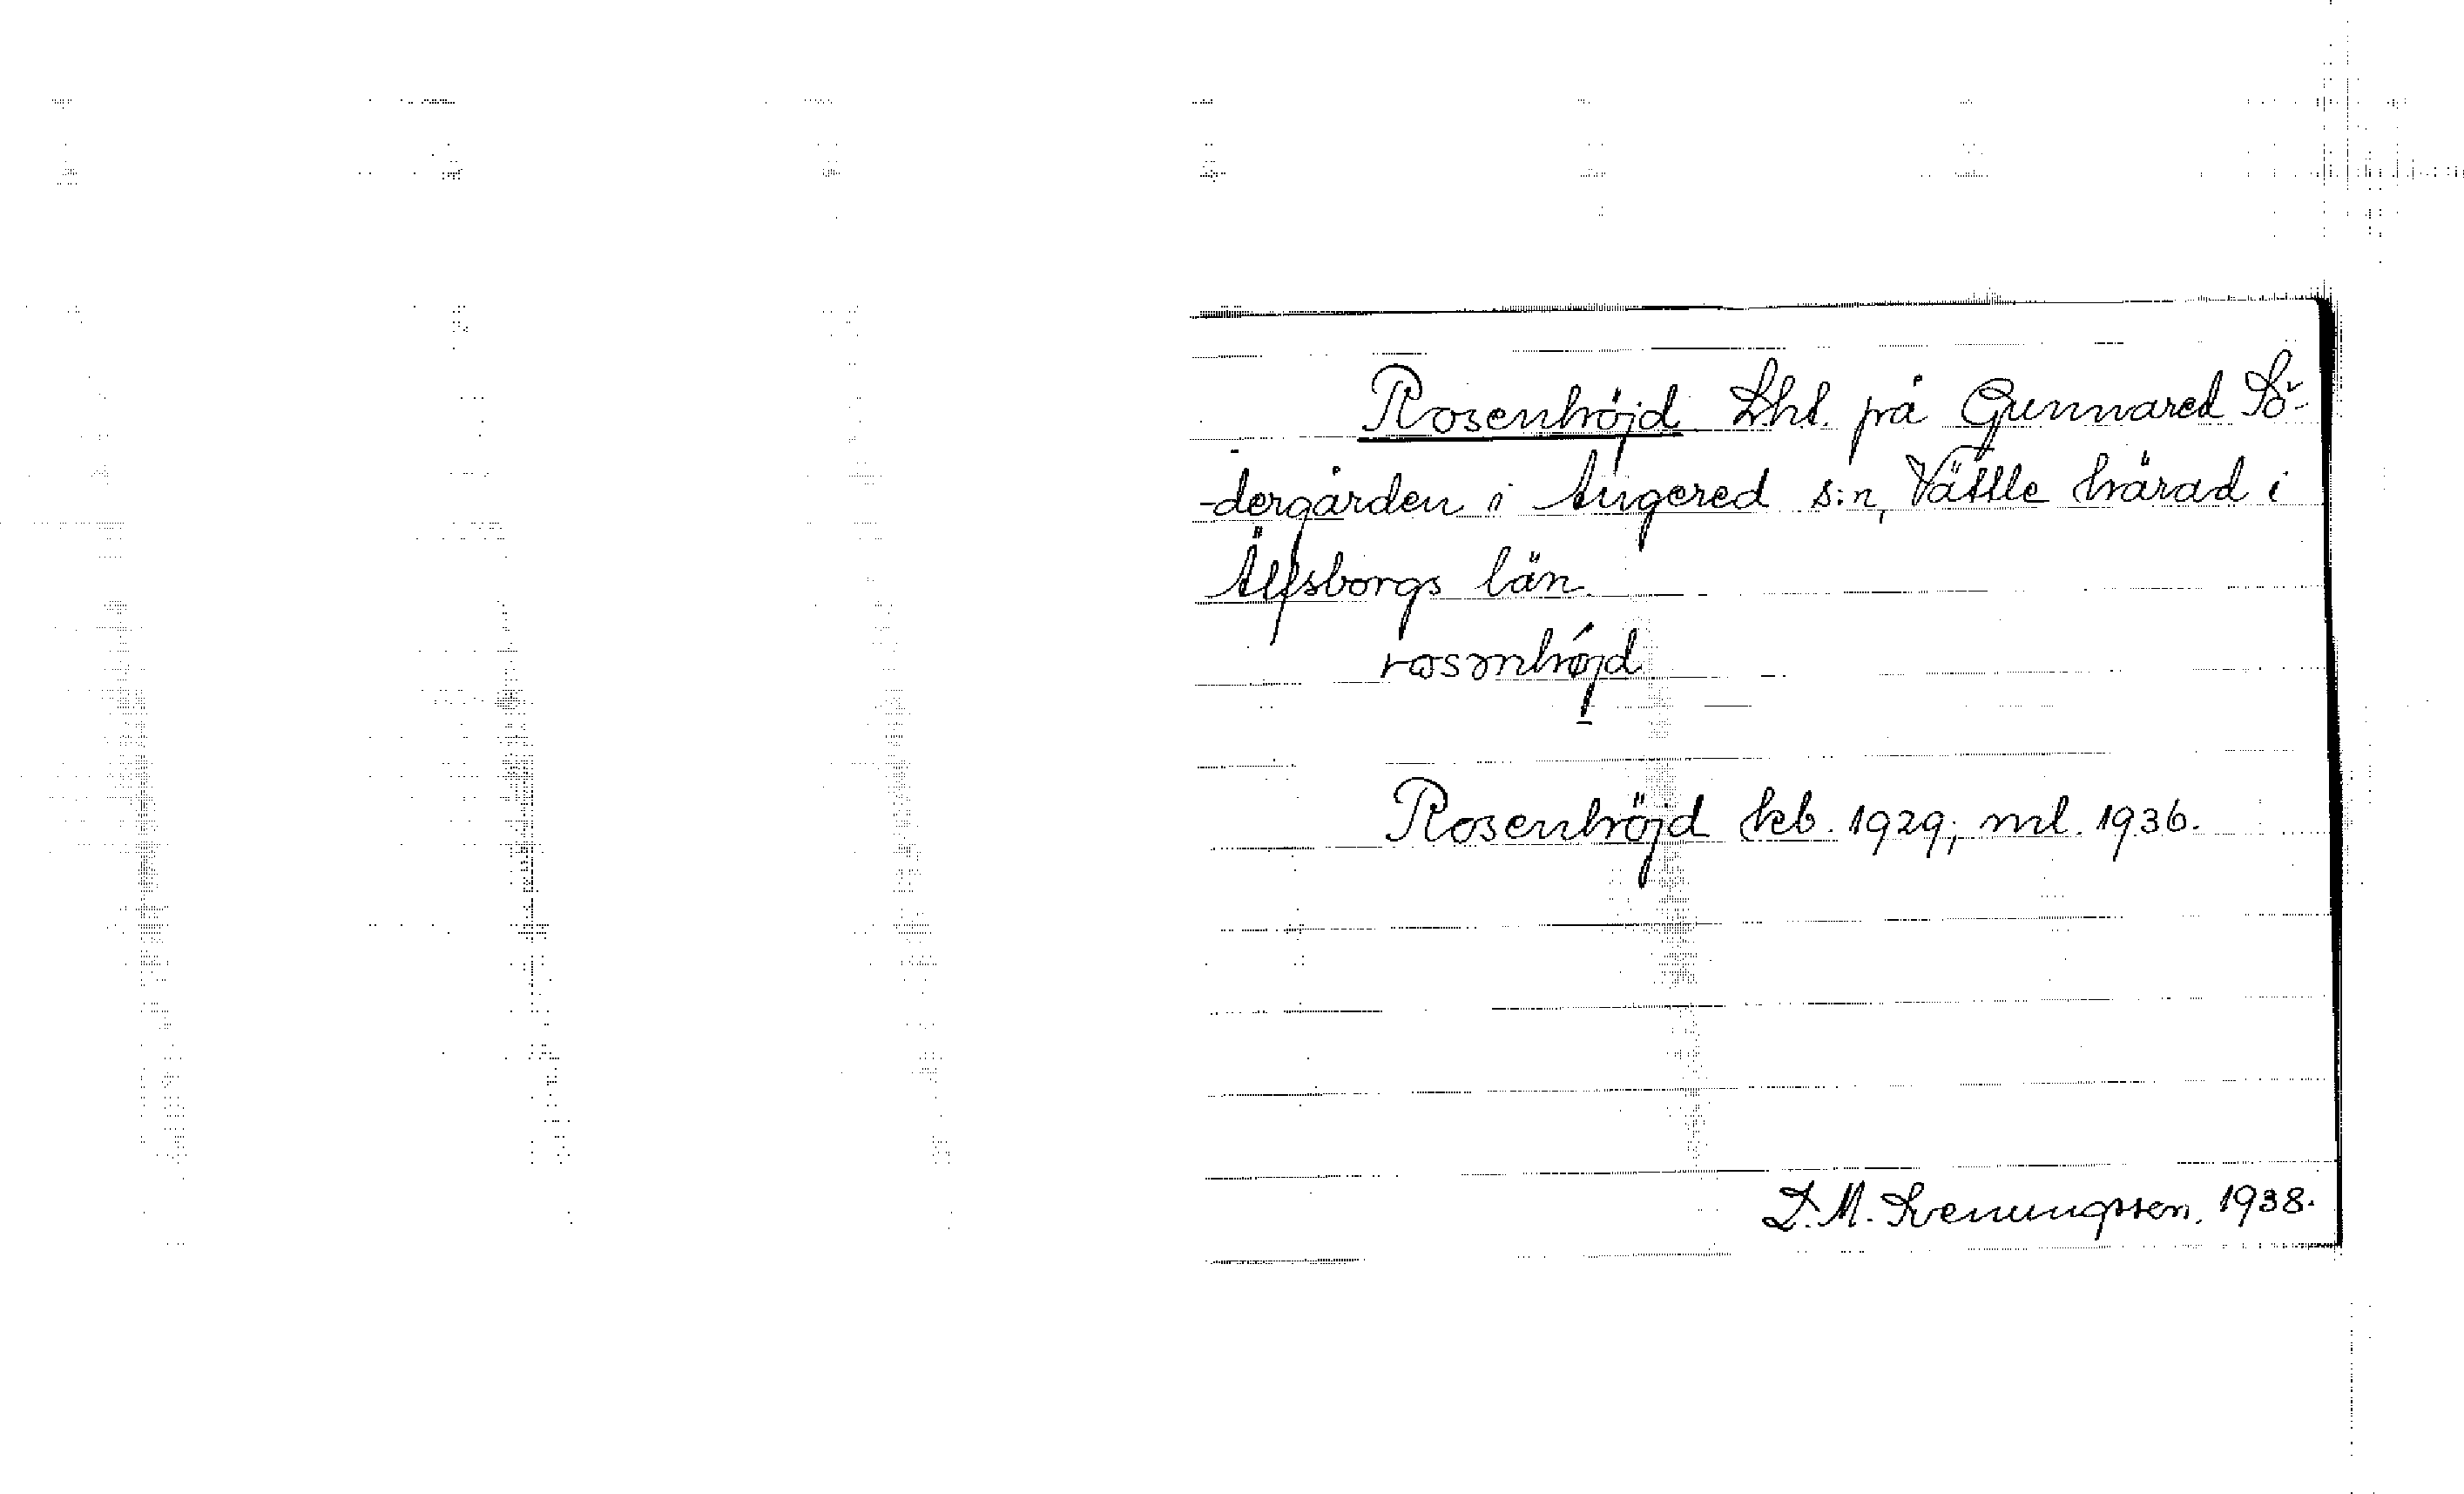 Rosenhöjd Lht. på Gunnared Sö-
-dergården i Angered s:n, Vättle härad i
Älfsborgs län.
rosənhø̀jd
Rosenhöjd kb. 1929; ml. 1936.
1938.